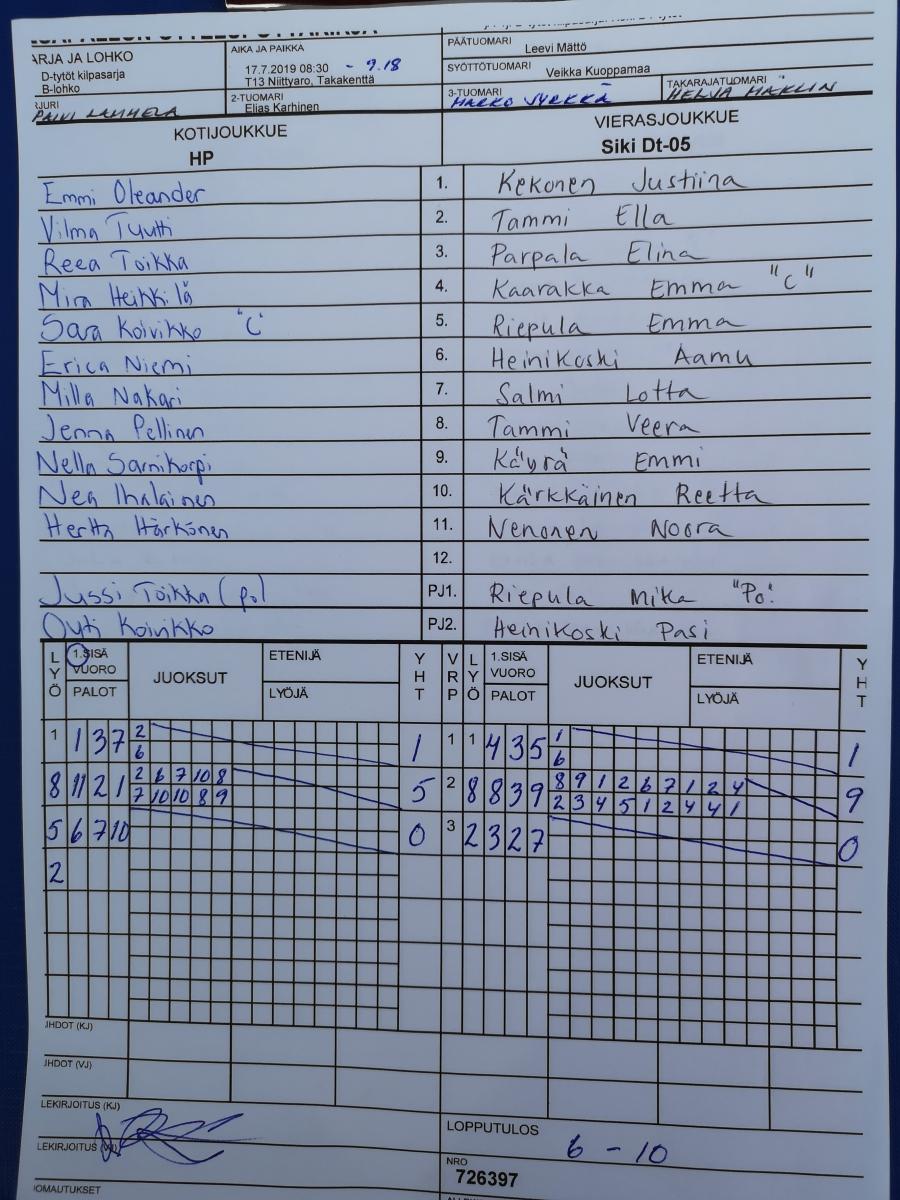 ARJA JA LOHKO
D-tytöt kilpasarja
B-lohko
AIKA JA PAIKKA
17.7.2019 08:30 - 9.18
T13 Niittyaro, Takakenttä
PÄÄTUOMARI Leevi Mättö
SYÖTTÖTUOMARI Veikka Kuoppamaa
2-TUOMARI
Elias Karhinen
3-TUOMARI
TAKARAJATUOMARI
KOTIJOUKKUE
HP
VIERASJOUKKUE
Siki Dt-05
Emmi Oleander 1. Kekonen Justiina
Vilma Tyutti 2. Tammi Ella
Reea Toikka 3. Parpala Elina
Mira Heikkilä 4. Kaarakka Emma "C"
Sara Koivikko "C" 5. Riepula Emma
Erica Niemi 6. Heinikoski Aamu
Milla Nakari 7. Salmi Lotta
Jenna Pellinen 8. Tammi Veera
Nella Sarnikorpi 9. Käyrä Emmi
Nea Ihalainen 10. Kärkkäinen Reetta
Hertta Härkönen 11. Nenonen Noora
12.
Jussi Toikka (po) PJ1. Riepula Mika "Po".
Outi Koivikko PJ2. Heinikoski Pasi
LYÖ 1.SISÄ VUORO PALOT JUOKSUT ETENIJÄ LYÖJÄ YHT VRP LYÖ 1.SISÄ VUORO PALOT JUOKSUT ETENIJÄ LYÖJÄ YHT
1 1 3 7 2 1 1 1 4 3 5 1 1
6 6
8 11 2 1 2 6 7 10 8 5 2 8 8 3 9 8 9 1 2 6 7 1 2 4 9
7 10 10 8 9 2 3 4 5 1 2 4 4 1
5 6 7 10 0 3 2 3 2 7 0
2
JHDOT (KJ)
JHDOT (VJ)
LEKIRJOITUS (KJ)
LEKIRJOITUS
LOPPUTULOS
6 - 10
NRO
726397
OMAUTUKSET